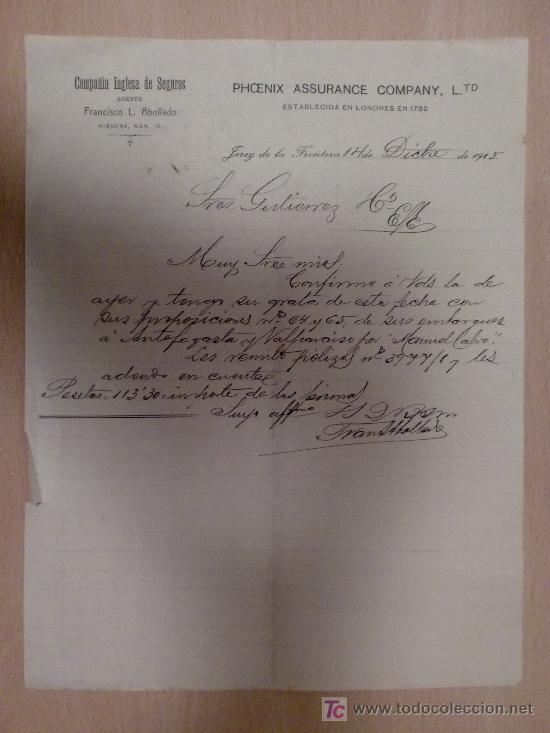 Compañia Inglesa de Seguros
AGENTE
Francisco L. Abollado
HIGUERA, NÚM. 12
PHŒNIX ASSURANCE COMPANY, L.TD
ESTABLECIDA EN LONDRES EN 1782
Jerez de la Frontera 14 de Dicbre de 1915.
Sres Gutierrez Hos
E/C
Muy Sres mios:
Confirmo á Vds. la de
ayer y tengo su grata de esta fecha con
sus proposiciones nos 64 y 65, de sus embarques
á Antofagasta y Valparaiso por "Manuel Calvo".
Les remito polizas nos 3977/8 y les
adeudo en cuenta
Pesetas 113'30 importe de las primas
Suyo affmo
Fran Abollado
TC
todocoleccion
www.todocoleccion.net